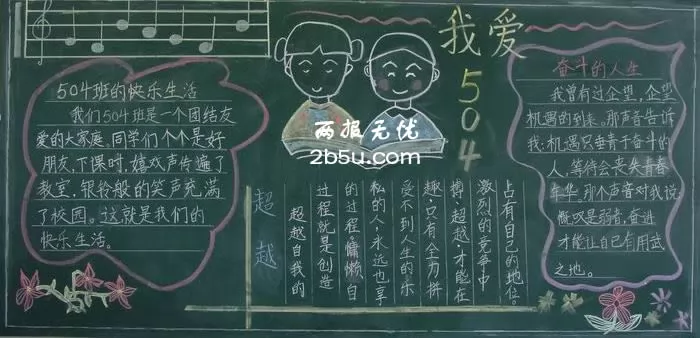 我爱
504
两报无忧
2b5u.com
504班的快乐生活
我们504班是一个团结友
爱的大家庭。同学们个个是好
朋友,下课时,嬉戏声传遍了
教室,银铃般的笑声充满
了校园。这就是我们的
快乐生活。
超越
超越自我的
过程就是创造
的过程。慵懒自
私的人,永远也享
受不到人生的乐
趣,只有全力拼
搏,超越,才能在
激烈的竞争中
占有自己的地位。
奋斗的人生
我曾有过企望,企望
机遇的到来。那声音告诉
我:机遇只垂青于奋斗的
人,等待会丧失青春
年华。那个声音对我说:
慨叹是弱者,奋进
才能让自己有用武
之地。